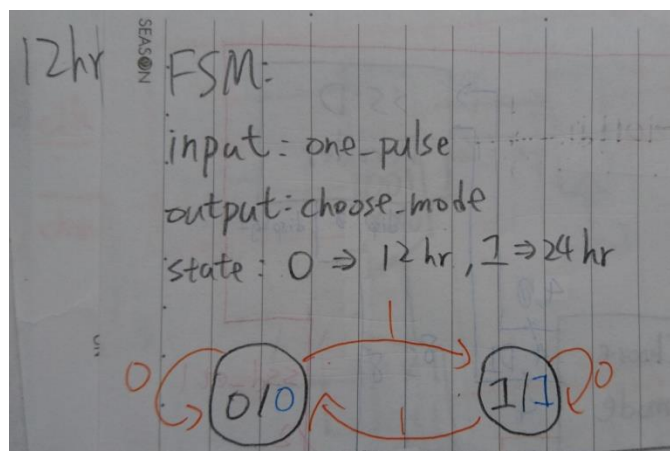 12hr
SEASON
FSM:
input: one_pulse
output: choose_mode
state: 0 ⇒ 12hr, 1 ⇒ 24hr
1
0
0/0
1/1
0
1